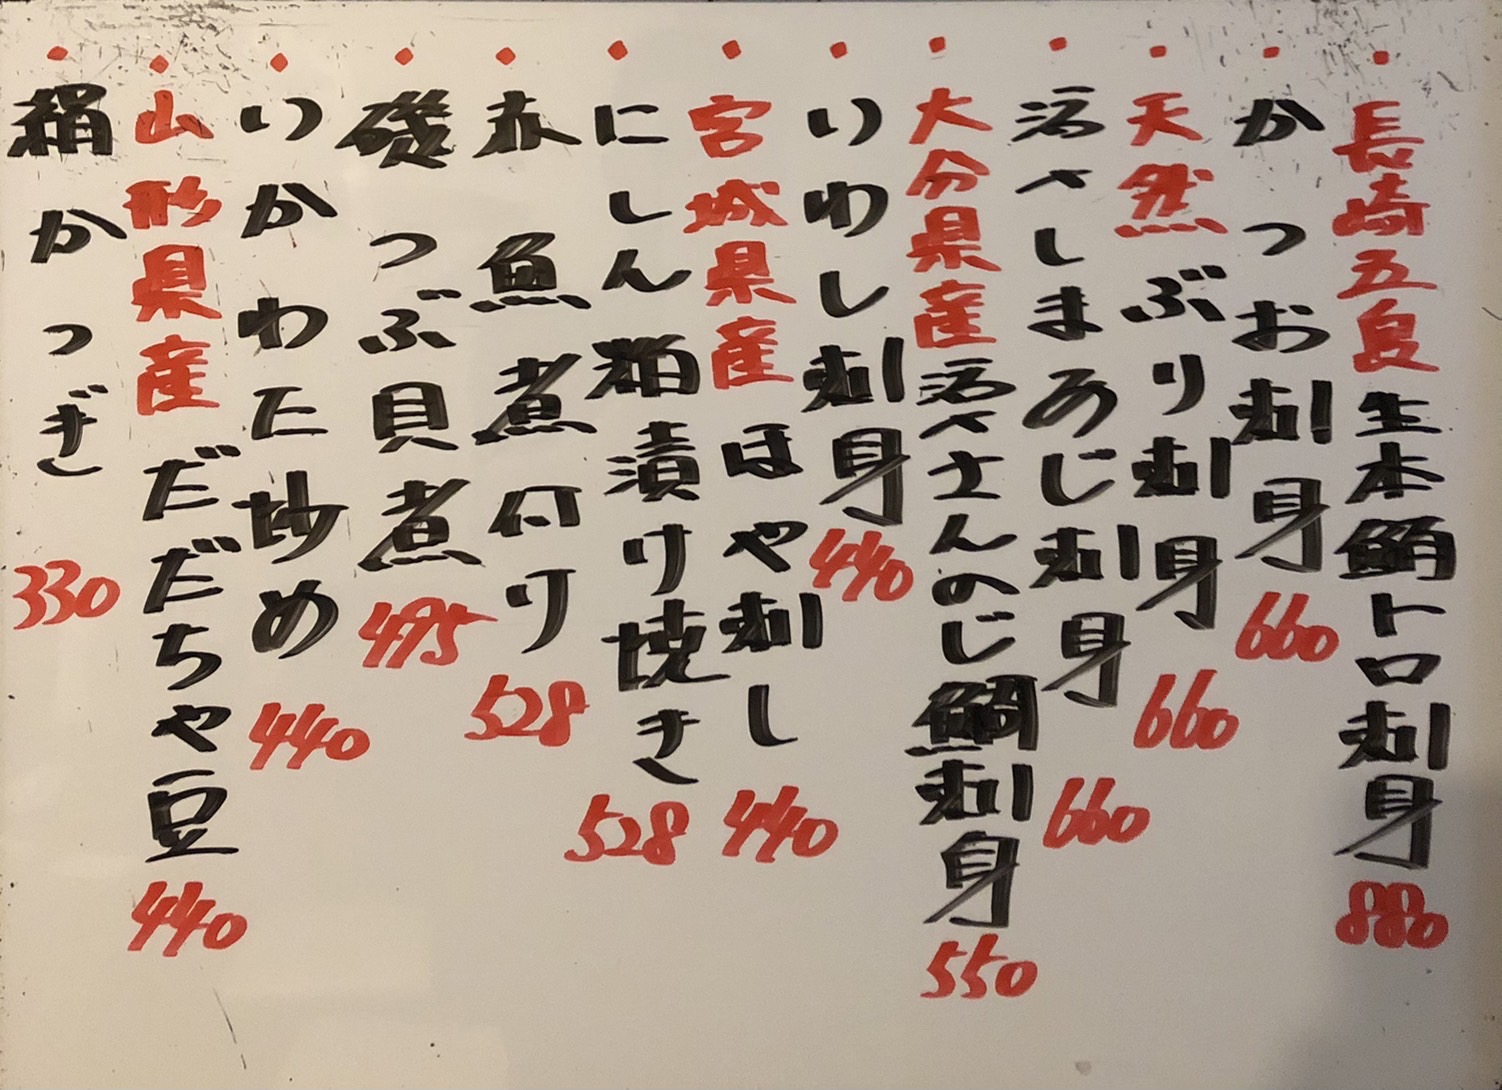 長崎五島生本鮪トロ刺身 880
かつお刺身 660
天然ぶり刺身 660
活〆しまあじ刺身 660
大分県産活〆さんのじ鯛刺身 550
いわし刺身 440
宮城県産ほや刺し 440
にしん粕漬け焼き 528
赤魚煮付け 528
磯つぶ貝煮 495
いかわた炒め 440
山形県産だだちゃ豆 440
絹かつぎ 330